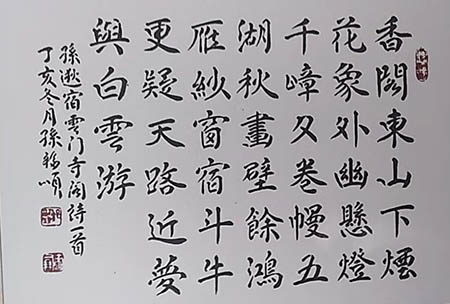 香閣東山下煙
花象外幽懸燈
千嶂夕卷幔五
湖秋畫壁餘鴻
雁紗窗宿斗牛
更疑天路近夢
與白雲游
孫逖宿雲门寺阁詩一首
丁亥冬月孫